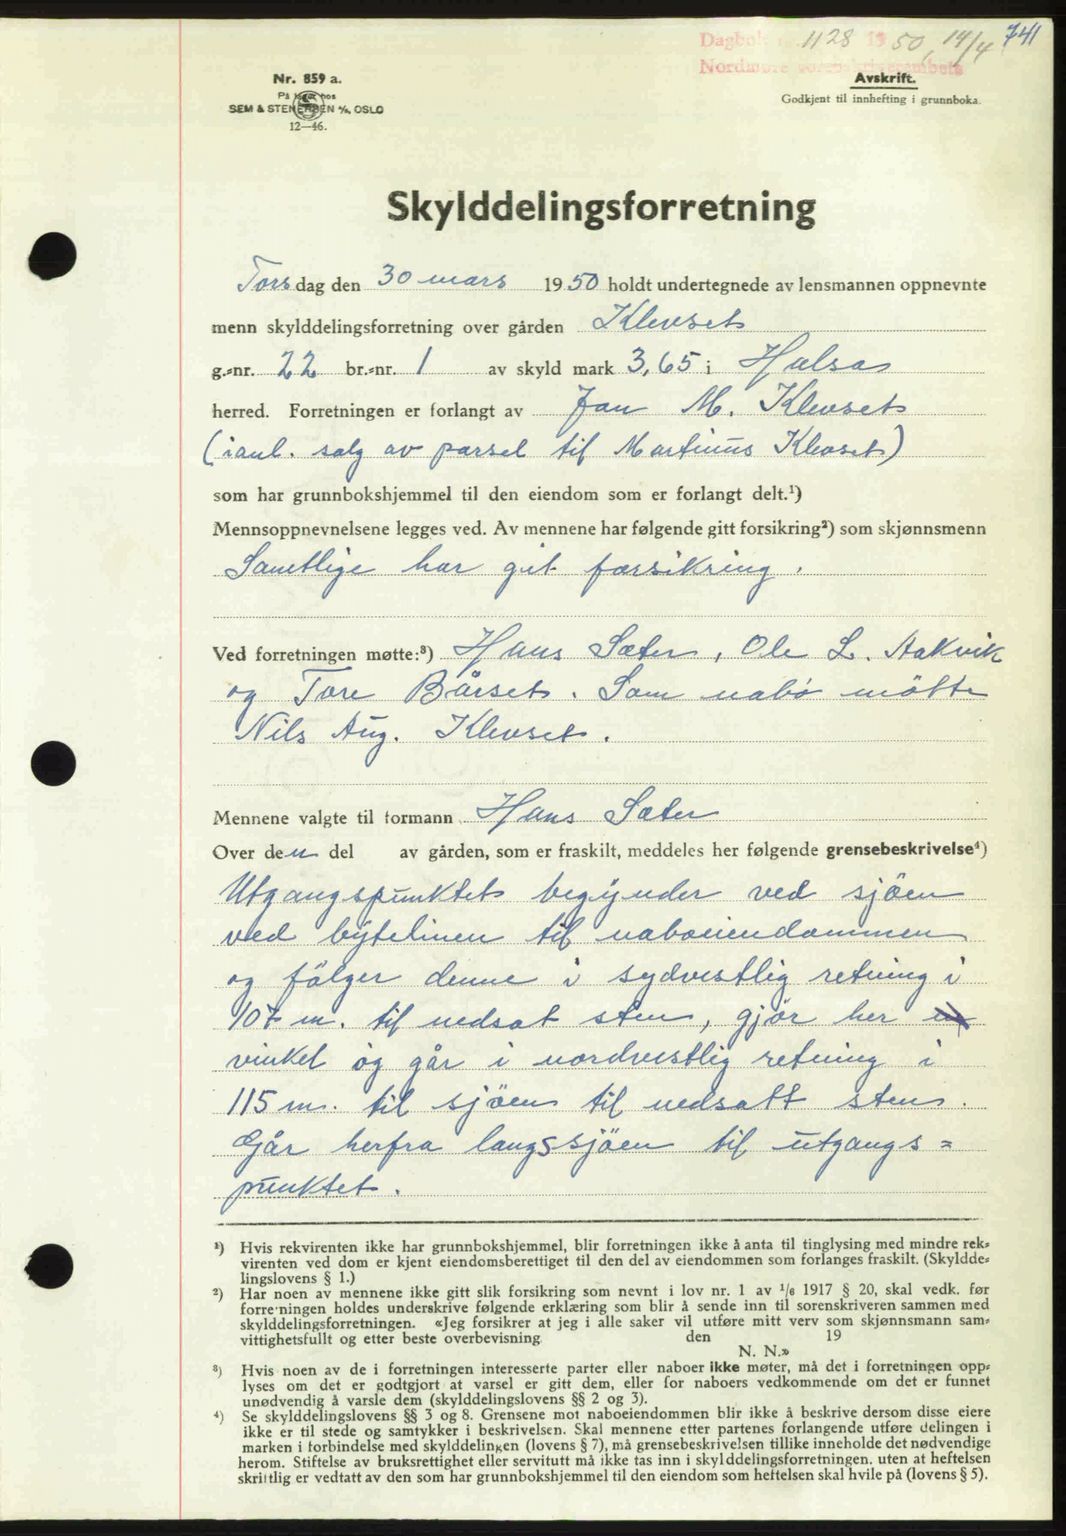 741
Dagbok 1128 1950, 14/4
Nordmøre sorenskriverembete
Nr. 859 a.
På lager hos
SEM & STENERSEN A/S, OSLO
12—46.
Avskrift.
Godkjent til innhefting i grunnboka.
Skylddelingsforretning
Torsdag den 30 mars 1950 holdt undertegnede av lensmannen oppnevnte
menn skylddelingsforretning over gården Klevset
g.-nr. 22 br.-nr. 1 av skyld mark 3,65 i Halsa
herred. Forretningen er forlangt av Jan M. Klevset
(i anl. salg av parsel til Martinus Klevset)
som har grunnbokshjemmel til den eiendom som er forlangt delt.¹)
Mennsoppnevnelsene legges ved. Av mennene har følgende gitt forsikring²) som skjønnsmenn
Samtlige har git forsikring.
Ved forretningen møtte:³) Hans Sæter, Ole L. Aakvik
og Tore Bårset. Som nabo mötte
Nils Aug. Klevset.
Mennene valgte til formann Hans Sæter
Over den del av gården, som er fraskilt, meddeles her følgende grensebeskrivelse⁴)
Utgangspunktet begynder ved sjöen
ved bytelinen til naboeiendommen
og fölger denne i sydvestlig retning i
107 m. til nedsat sten, gjör her
vinkel og går i nordvestlig retning i
115 m. til sjöen til nedsatt sten.
Går herfra langs sjöen til utgangs=
punktet.
¹) Hvis rekvirenten ikke har grunnbokshjemmel, blir forretningen ikke å anta til tinglysing med mindre rek-
virenten ved dom er kjent eiendomsberettiget til den del av eiendommen som forlanges fraskilt. (Skyldde-
lingslovens § 1.)
²) Har noen av mennene ikke gitt slik forsikring som nevnt i lov nr. 1 av 1/6 1917 § 20, skal vedk. før
forretningen holdes underskrive følgende erklæring som blir å sende inn til sorenskriveren sammen med
skylddelingsforretningen. «Jeg forsikrer at jeg i alle saker vil utføre mitt verv som skjønnsmann sam-
vittighetsfullt og etter beste overbevisning den 19
N. N.»
³) Hvis noen av de i forretningen interesserte parter eller naboer ikke møter, må det i forretningen opp-
lyses om det er godtgjort at varsel er gitt dem, eller for naboers vedkommende om det er funnet
unødvendig å varsle dem (skylddelingslovens §§ 2 og 3).
⁴) Se skylddelingslovens §§ 3 og 8. Grensene mot naboeiendommen blir ikke å beskrive dersom disse eiere
ikke er til stede og samtykker i beskrivelsen. Skal mennene etter partenes forlangende utføre delingen i
marken i forbindelse med skylddelingen (lovens § 7), må grensebeskrivelsen tillike inneholde det nødvendige
herom. Stiftelse av bruksrettighet eller servitutt må ikke tas inn i skylddelingsforretningen, uten at heftelsen
skriftlig er vedtatt av den som har grunnbokshjemmel til den eiendom som heftelsen skal hvile på (lovens § 5).